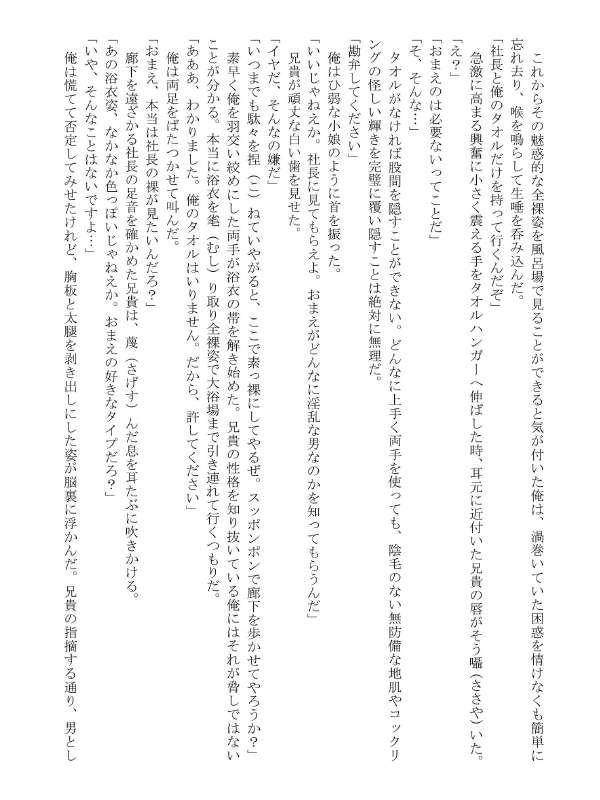 これからその魅惑的な全裸姿を風呂場で見ることができると気が付いた俺は、渦巻いていた困惑を情けなくも簡単に
忘れ去り、喉を鳴らして生唾を呑み込んだ。
「社長と俺のタオルだけを持って行くんだぞ」
急激に高まる興奮に小さく震える手をタオルハンガーへ伸ばした時、耳元に近付いた兄貴の唇がそう囁（ささや）いた。
「え？」
「おまえのは必要ないってことだ」
「そ、そんな…」
タオルがなければ股間を隠すことができない。どんなに上手く両手を使っても、陰毛のない無防備な地肌やコックリ
ングの怪しい輝きを完璧に覆い隠すことは絶対に無理だ。
「勘弁してください」
俺はひ弱な小娘のように首を振った。
「いいじゃねえか。社長に見てもらえよ。おまえがどんなに淫乱な男なのかを知ってもらうんだ」
兄貴が頑丈な白い歯を見せた。
「イヤだ、そんなの嫌だ」
「いつまでも駄々を捏（こ）ねていやがると、ここで素っ裸にしてやるぜ。スッポンポンで廊下を歩かせてやろうか？」
素早く俺を羽交い絞めにした両手が浴衣の帯を解き始めた。兄貴の性格を知り抜いている俺にはそれが脅しではない
ことが分かる。本当に浴衣を毟（むし）り取り全裸姿で大浴場まで引き連れて行くつもりだ。
「あああ、わかりました。俺のタオルはいりません。だから、許してください」
俺は両足をばたつかせて叫んだ。
「おまえ、本当は社長の裸が見たいんだろ？」
廊下を遠ざかる社長の足音を確かめた兄貴は、蔑（さげす）んだ息を耳たぶに吹きかける。
「あの浴衣姿、なかなか色っぽいじゃねえか。おまえの好きなタイプだろ？」
「いや、そんなことはないですよ…」
俺は慌てて否定してみせたけれど、胸板と太腿を剥き出しにした姿が脳裏に浮かんだ。兄貴の指摘する通り、男とし